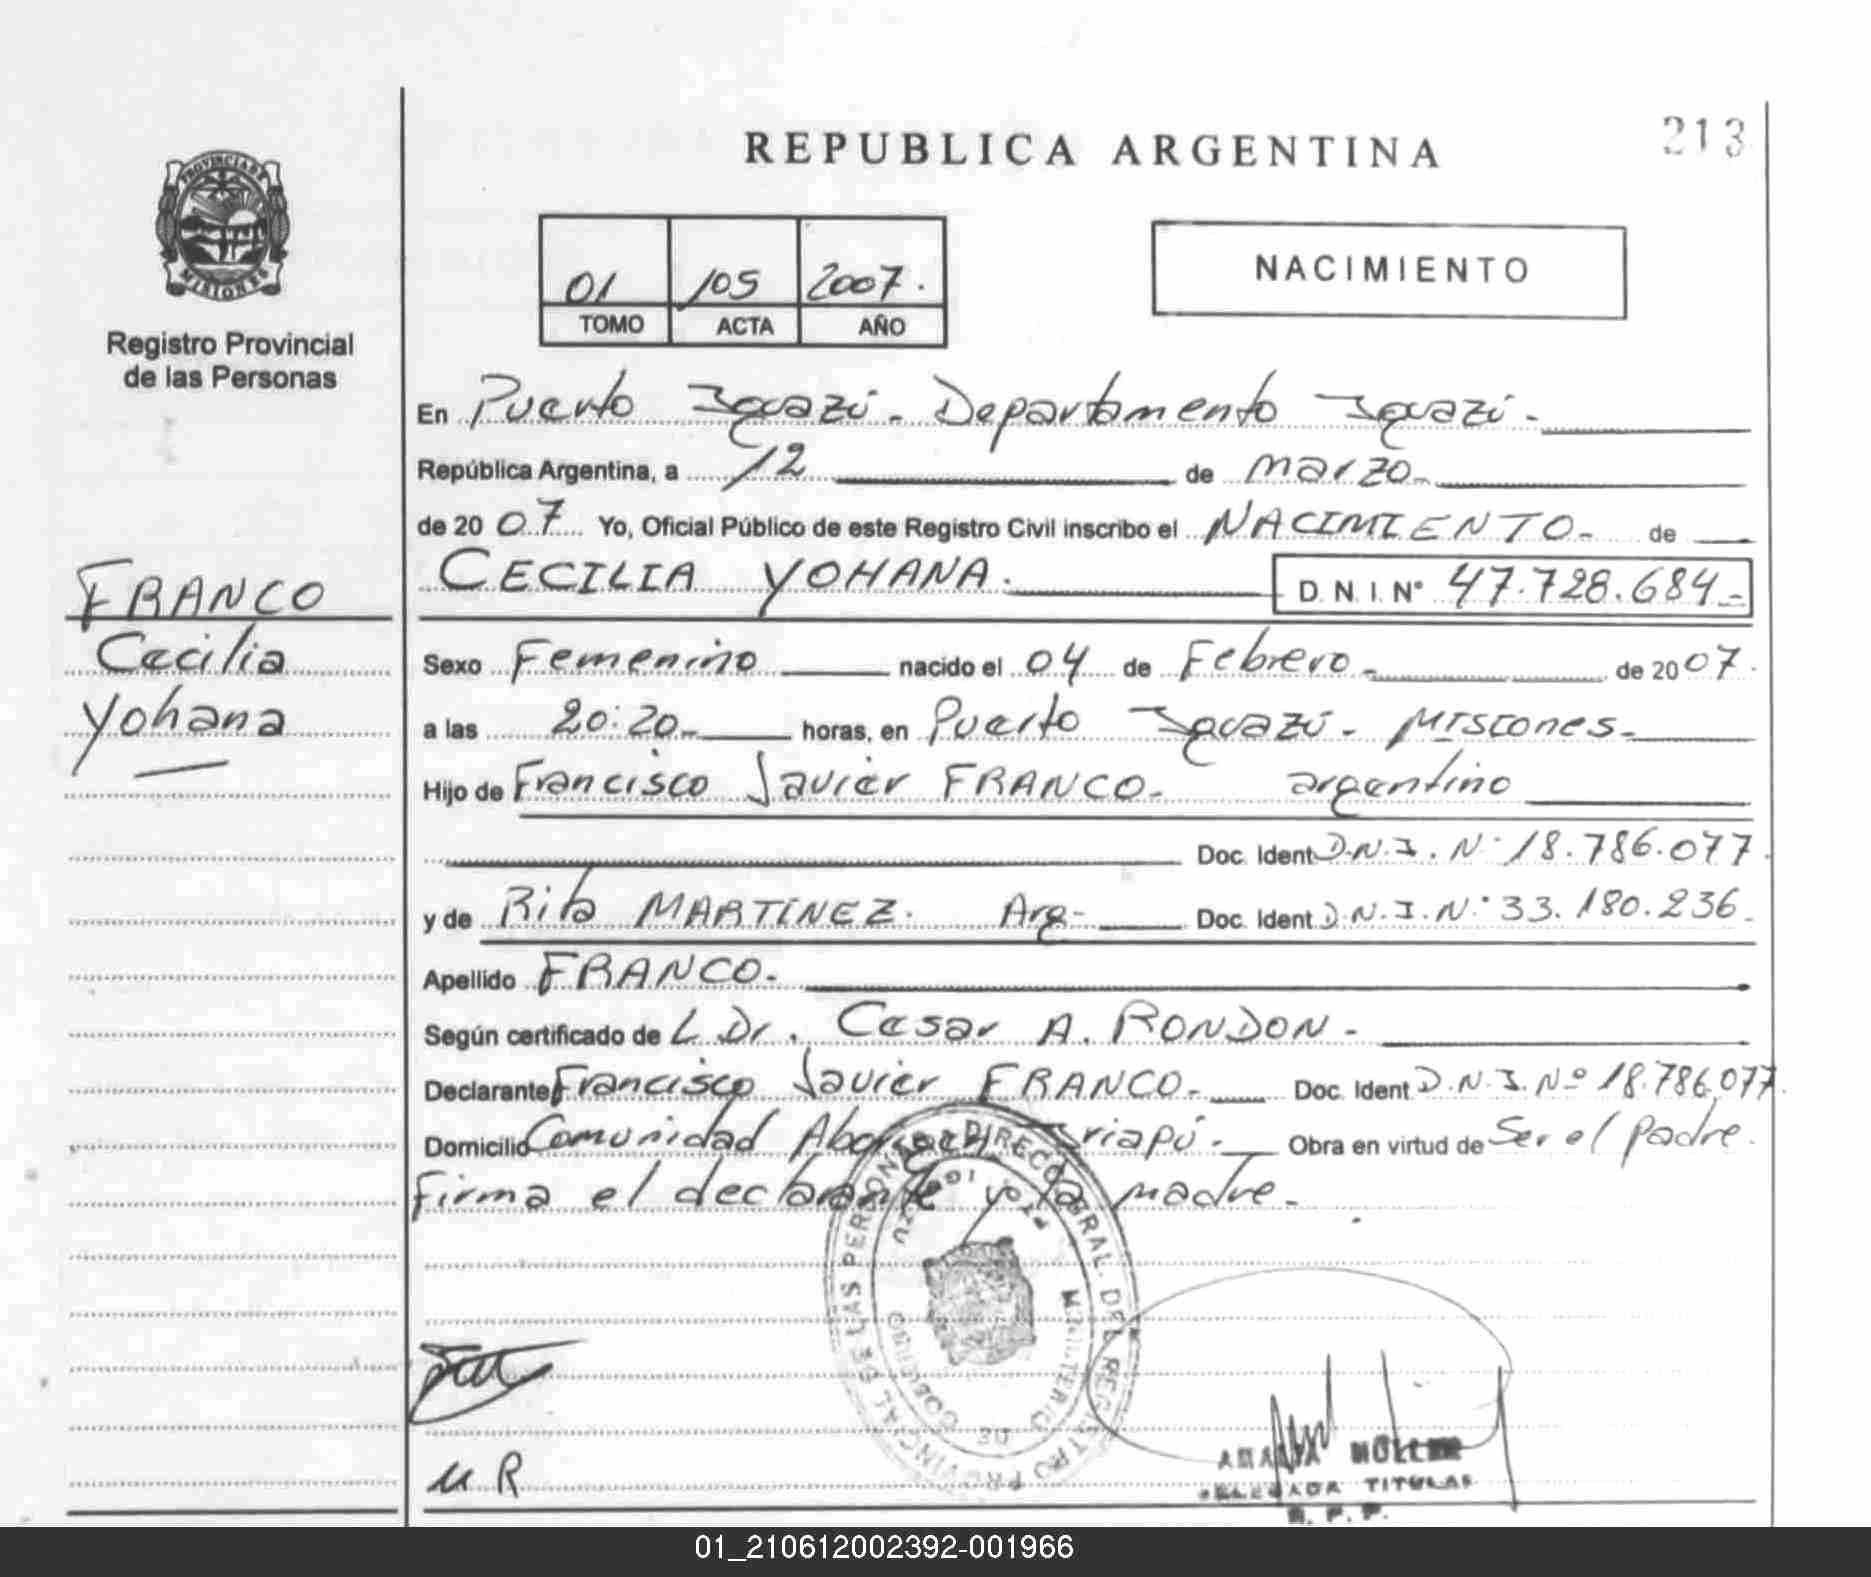 REPUBLICA ARGENTINA
213
PROVINCIA DE
MISIONES
Registro Provincial
de las Personas
01 105 2007.
TOMO ACTA AÑO
NACIMIENTO
En Puerto Iguazú - Departamento Iguazú -
República Argentina, a 12 de marzo
de 2007 Yo, Oficial Público de este Registro Civil inscribo el NACIMIENTO - de
CECILIA YOHANA. D. N. I. N° 47.728.684 -
FRANCO
Cecilia
Yohana
Sexo Femenino nacido el 04 de Febrero - de 2007.
a las 20:20 - horas, en Puerto Iguazú - Misiones -
Hijo de Francisco Javier FRANCO - argentino
Doc. Ident D.N.I. N° 18.786.077.
y de Rita MARTINEZ. Arg - Doc. Ident D.N.I. N° 33.180.236 -
Apellido FRANCO -
Según certificado de L. Dr. Cesar A. RONDON -
Declarante Francisco Javier FRANCO - Doc. Ident D.N.I. Nº 18.786.077.
Domicilio Comunidad Iriapú - Obra en virtud de Ser el padre.
Firma el declarante y la madre -
DIREC. GRAL. DEL REGISTRO PROVINCIAL DE LAS PERSONAS
MINISTERIO DE GOBIERNO
PTO. IGUAZU
M R
AMALIA MÜLLER
DELEGADA TITULAR
R. P. P.
01_210612002392-001966